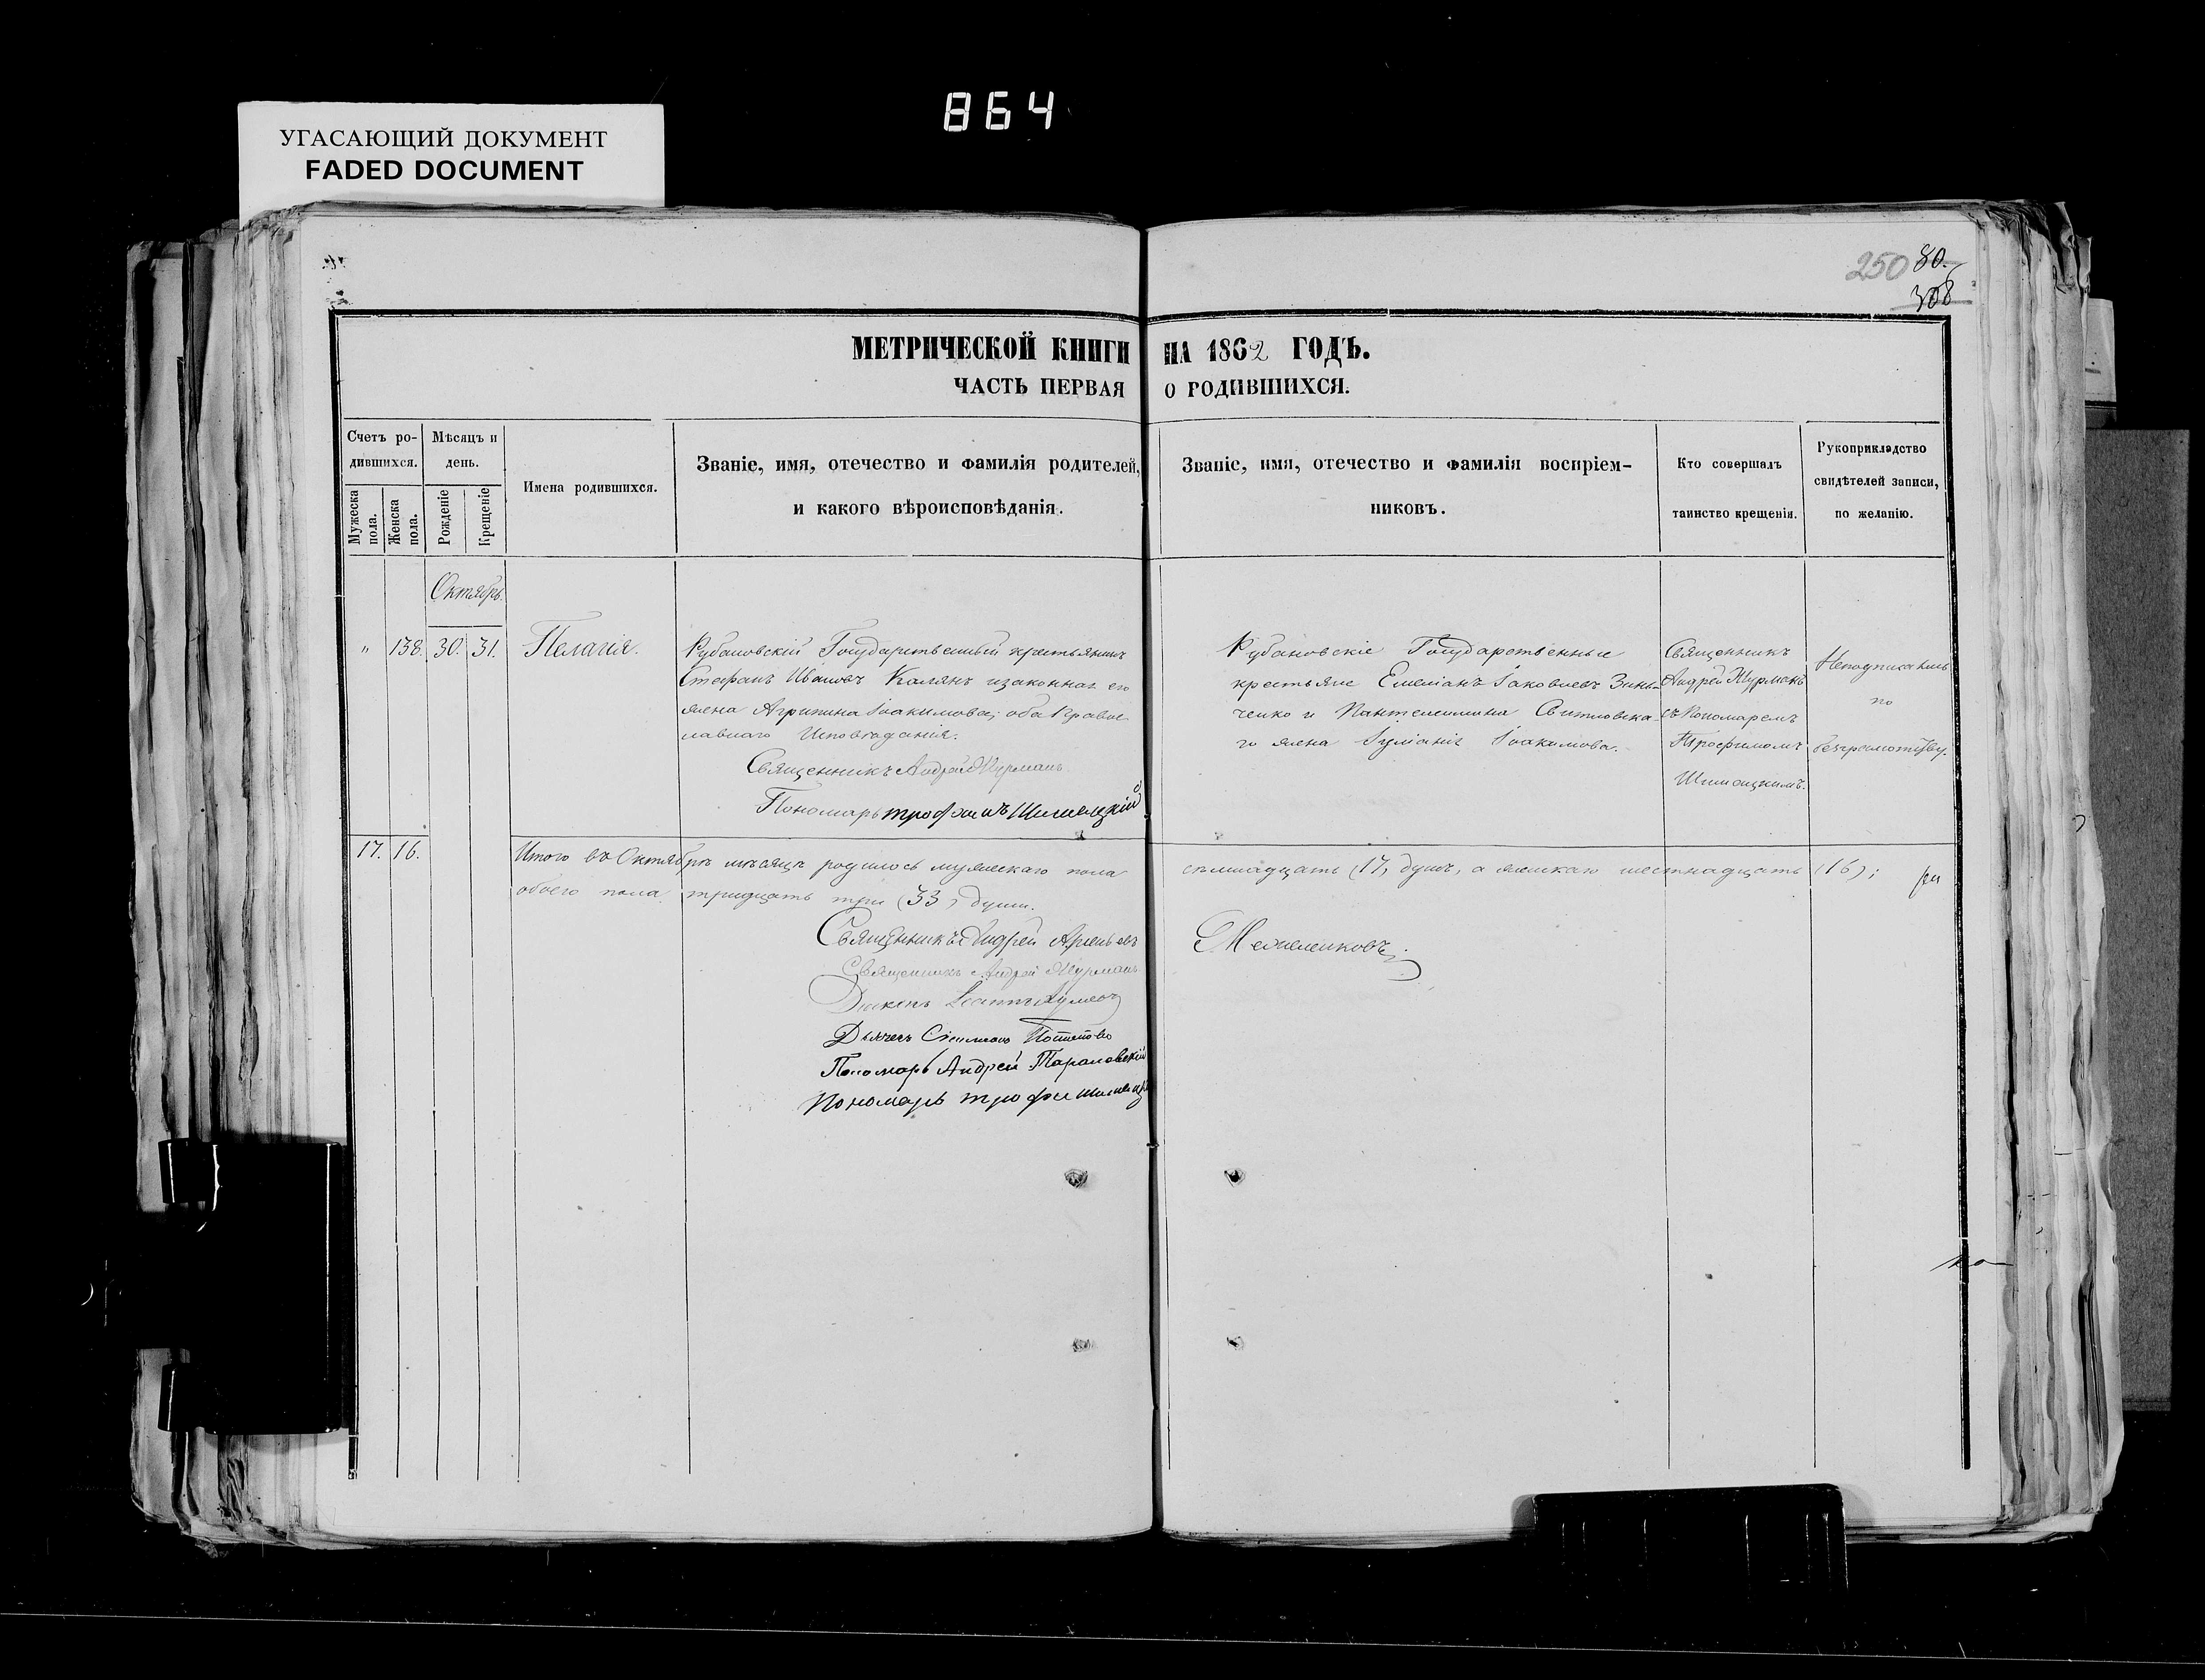 864
УГАСАЮЩИЙ ДОКУМЕНТ
FADED DOCUMENT
250 80.
308
МЕТРИЧЕСКОЙ КНИГИ НА 1862 ГОДЪ.
ЧАСТЬ ПЕРВАЯ О РОДИВШИХСЯ.
Счетъ ро-
дившихся.
Мужеска пола.
Женска пола.
Мѣсяцъ и
день.
Рожденіе
Крещеніе
Имена родившихся.
Званіе, имя, отечество и фамилія родителей,
и какого вѣроисповѣданія.
Званіе, имя, отечество и фамилія воспріем-
никовъ.
Кто совершалъ
таинство крещенія.
Рукоприкладство
свидѣтелей записи,
по желанію.
Октябрь
" 138. 30. 31. Пелагія.
Рубановскій Государственный крестьянинъ
Стефанъ Ивановъ Калянъ изаконная его
жена Агрипина Іоакимова; оба Право
славнаго Исповѣданія.
Священникъ Андрей Журманъ
Пономарь трофимъ Шимацкій
Рубановскіе Государственные
крестьяне Емеліанъ Іаковлевъ Зинь-
ченко и Пантелеимона Свитловска-
го жена Іуліанія Іоакимова.
Священникъ
Андрей Журманъ
съ Пономаремъ
Трофимомъ
Шимацкимъ.
Неподписались
по
безграмотству.
17. 16.
Итого въ Октябрѣ мѣсяцѣ родилось мужескаго пола семнадцать (17) душъ, а женскаго шестнадцать (16);
обоего пола тридцать три (33) души.
Священникъ Андрей Арсеньевъ
Священникъ Андрей Журманъ
Пономарь Андрей Тарановскій
Пономарь трофим